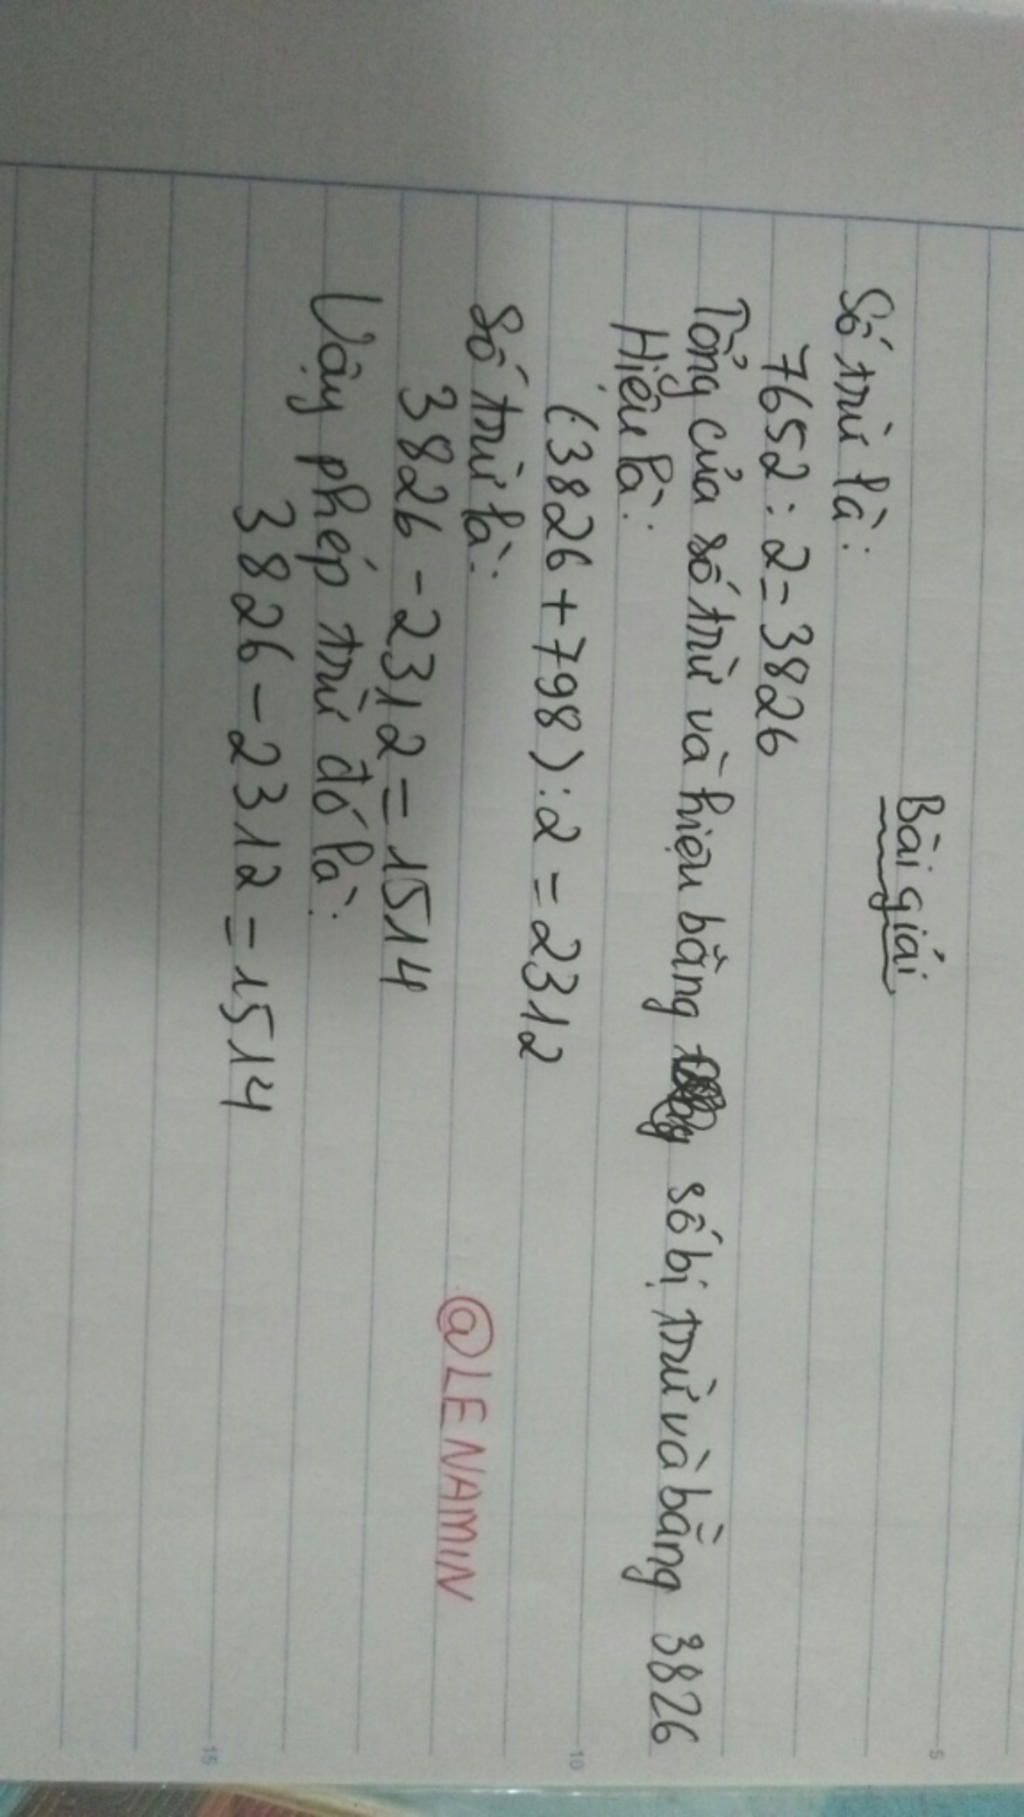 Bài giải
Số trừ là:
7652 : 2 = 3826
Tổng của số trừ và hiệu bằng số bị trừ và bằng 3826
Hiệu là:
(3826 + 798) : 2 = 2312
Số trừ là:
3826 - 2312 = 1514
@LENAMIN
Vậy phép trừ đó là:
3826 - 2312 = 1514
5
10
15